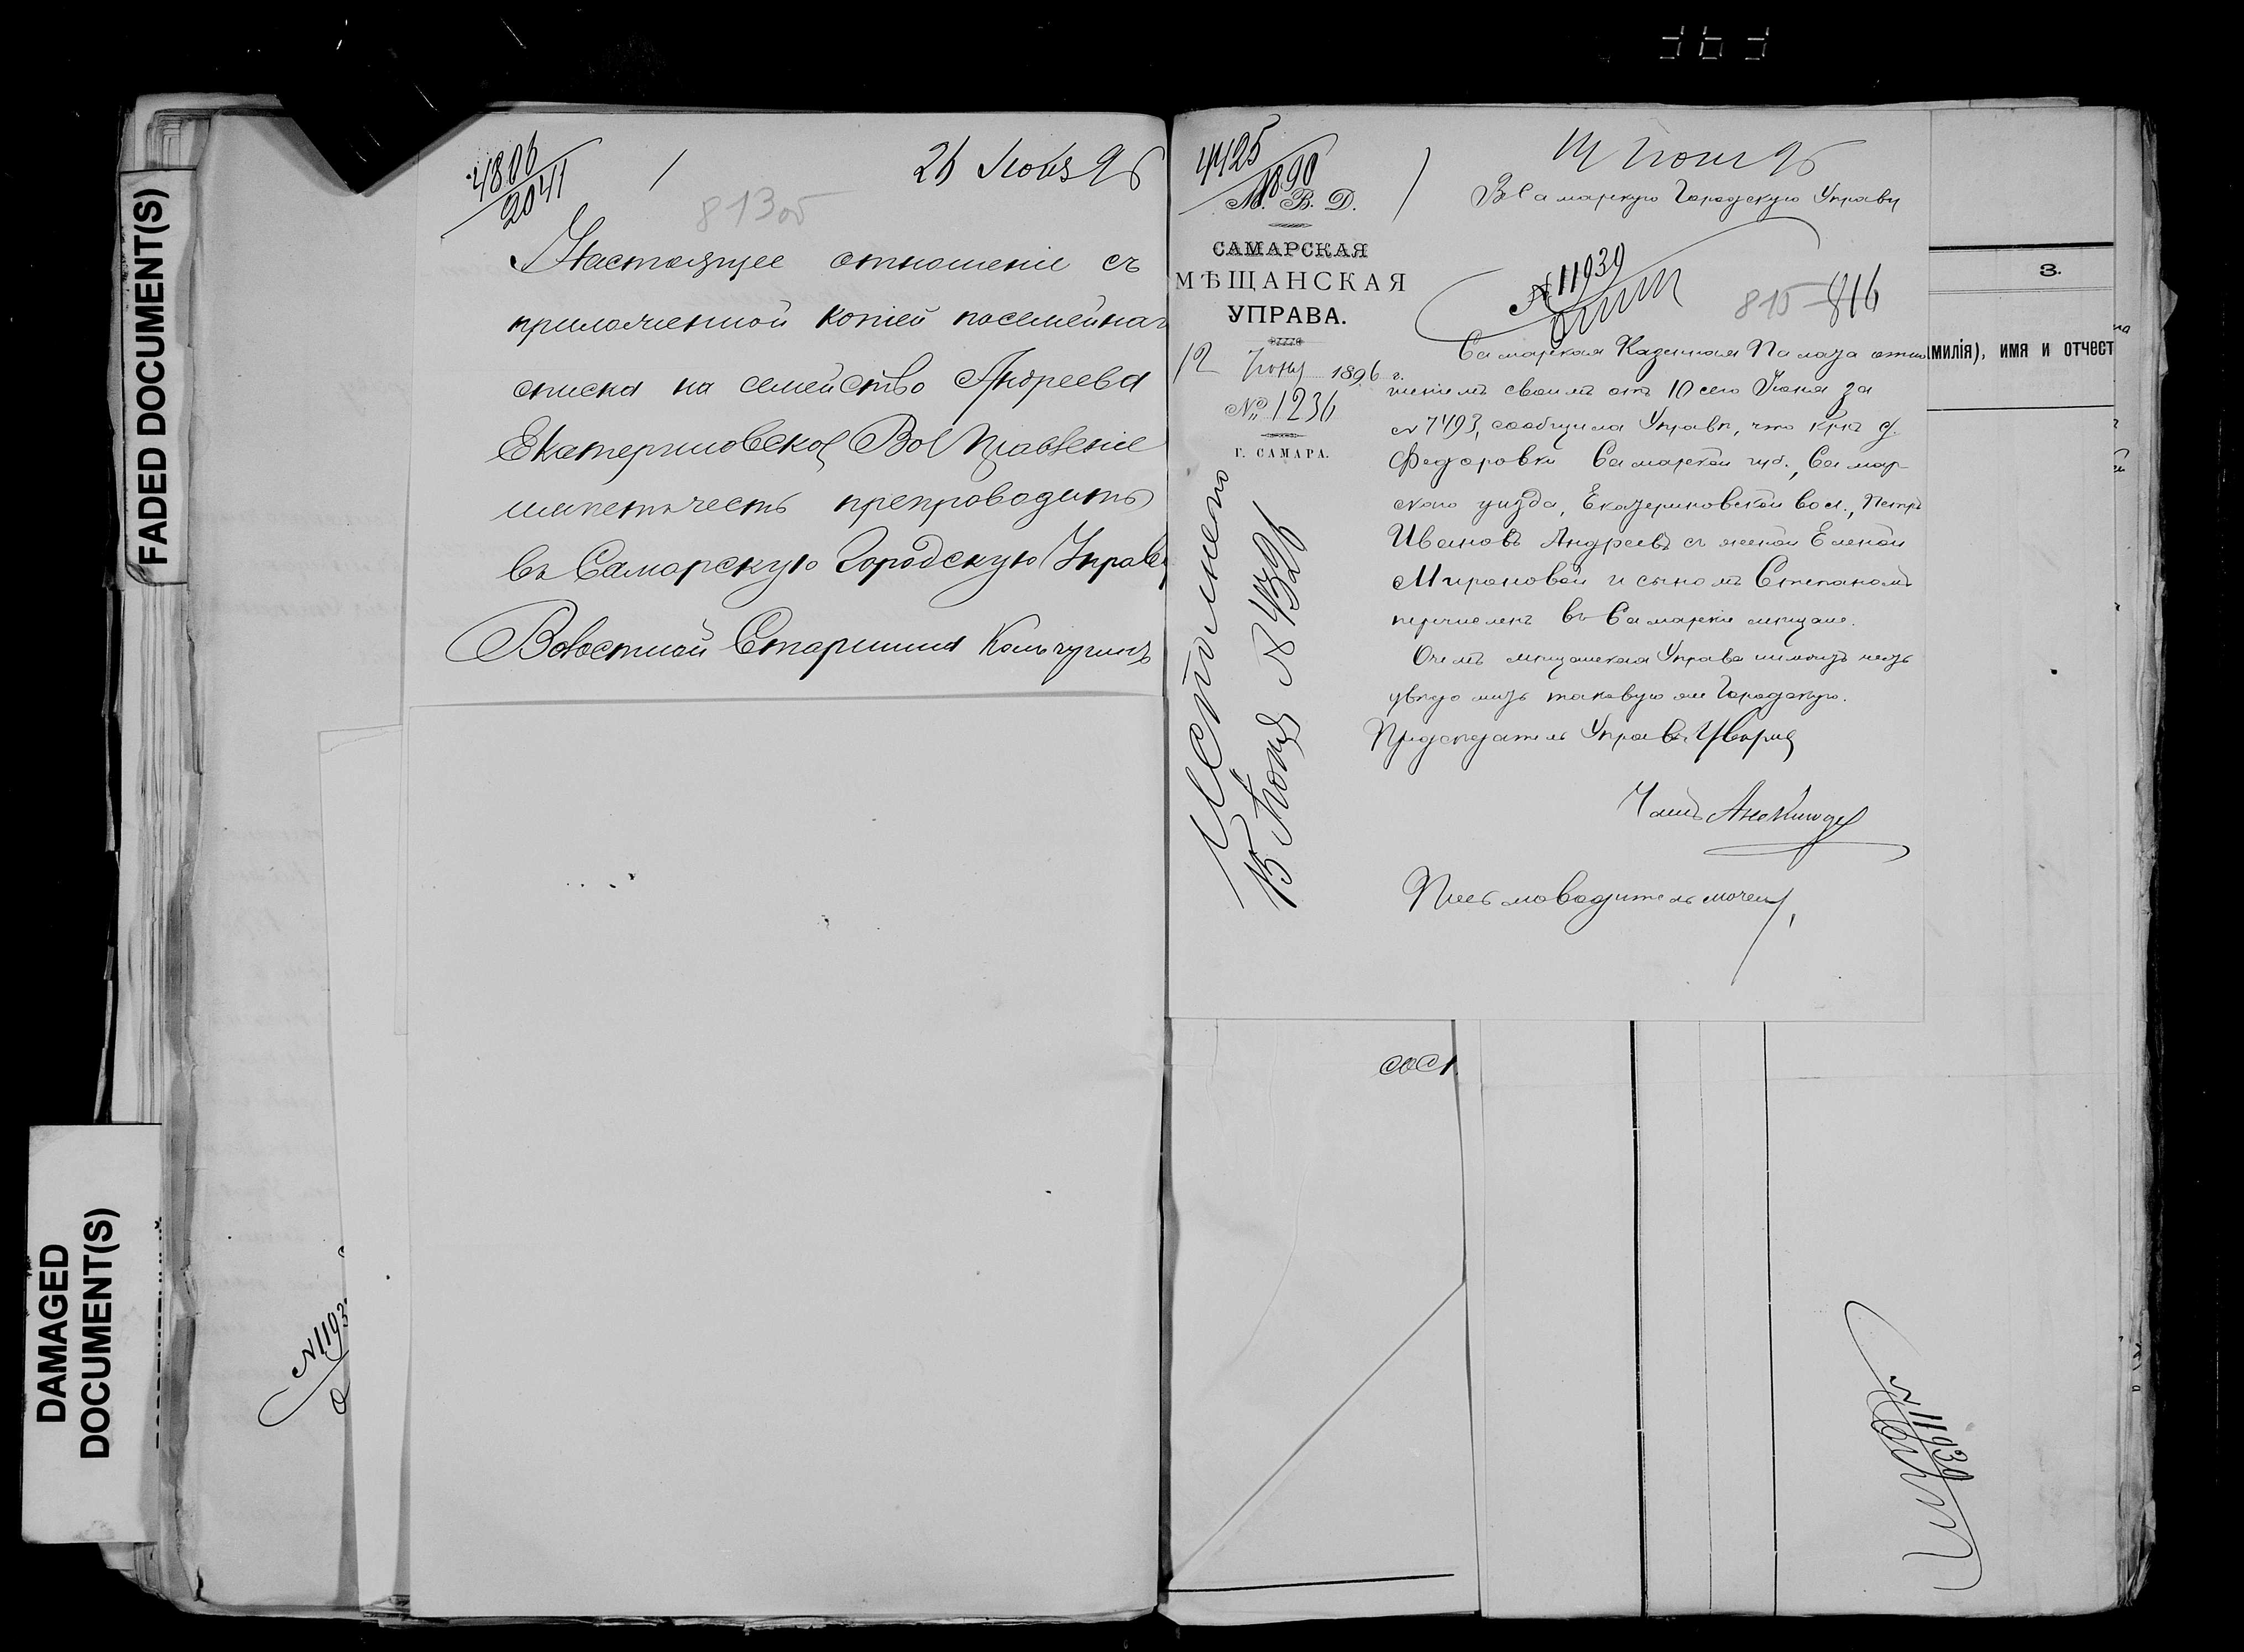 FADED DOCUMENT(S)
DAMAGED
DOCUMENT(S)
4806
2041
26 Июня 96
813об
Настоящее отношеніе съ
приложенной копіей посемейнаг
списка на семейство Андреева
Екатериновское Вол Правленіе
имѣетъ честь препроводить
въ Самарскую Городскую Управу
Волостной Старшина
№ 1193
4425
1890
М. В. Д.
САМАРСКАЯ
МѢЩАНСКАЯ
УПРАВА.
12 Іюня 1896 г.
№ 1236
Г. САМАРА.
Исполнено
15 Июня № 4326
14 Июня 96
В Самарскую Городскую Управу
№ 11939
815-816
Самарская Казенная Палата отно
шеніемъ своимъ отъ 10 сего Іюня за
№ 7493, сообщила Управѣ, что крнъ д.
Федоровки Самарской губ., Самар-
скаго уѣзда, Екатериновской вол., Петръ
Ивановъ Андреевъ съ женой Еленой
Мироновой и сыномъ Степаномъ
перечисленъ въ Самарскіе мѣщане.
О чемъ мѣщанская Управа имѣетъ честь
увѣдомить таковую же Городскую.
Предсѣдатель Управы
Членъ
Письмоводитель
3.
милія), имя и отчест
сост
№ 11939